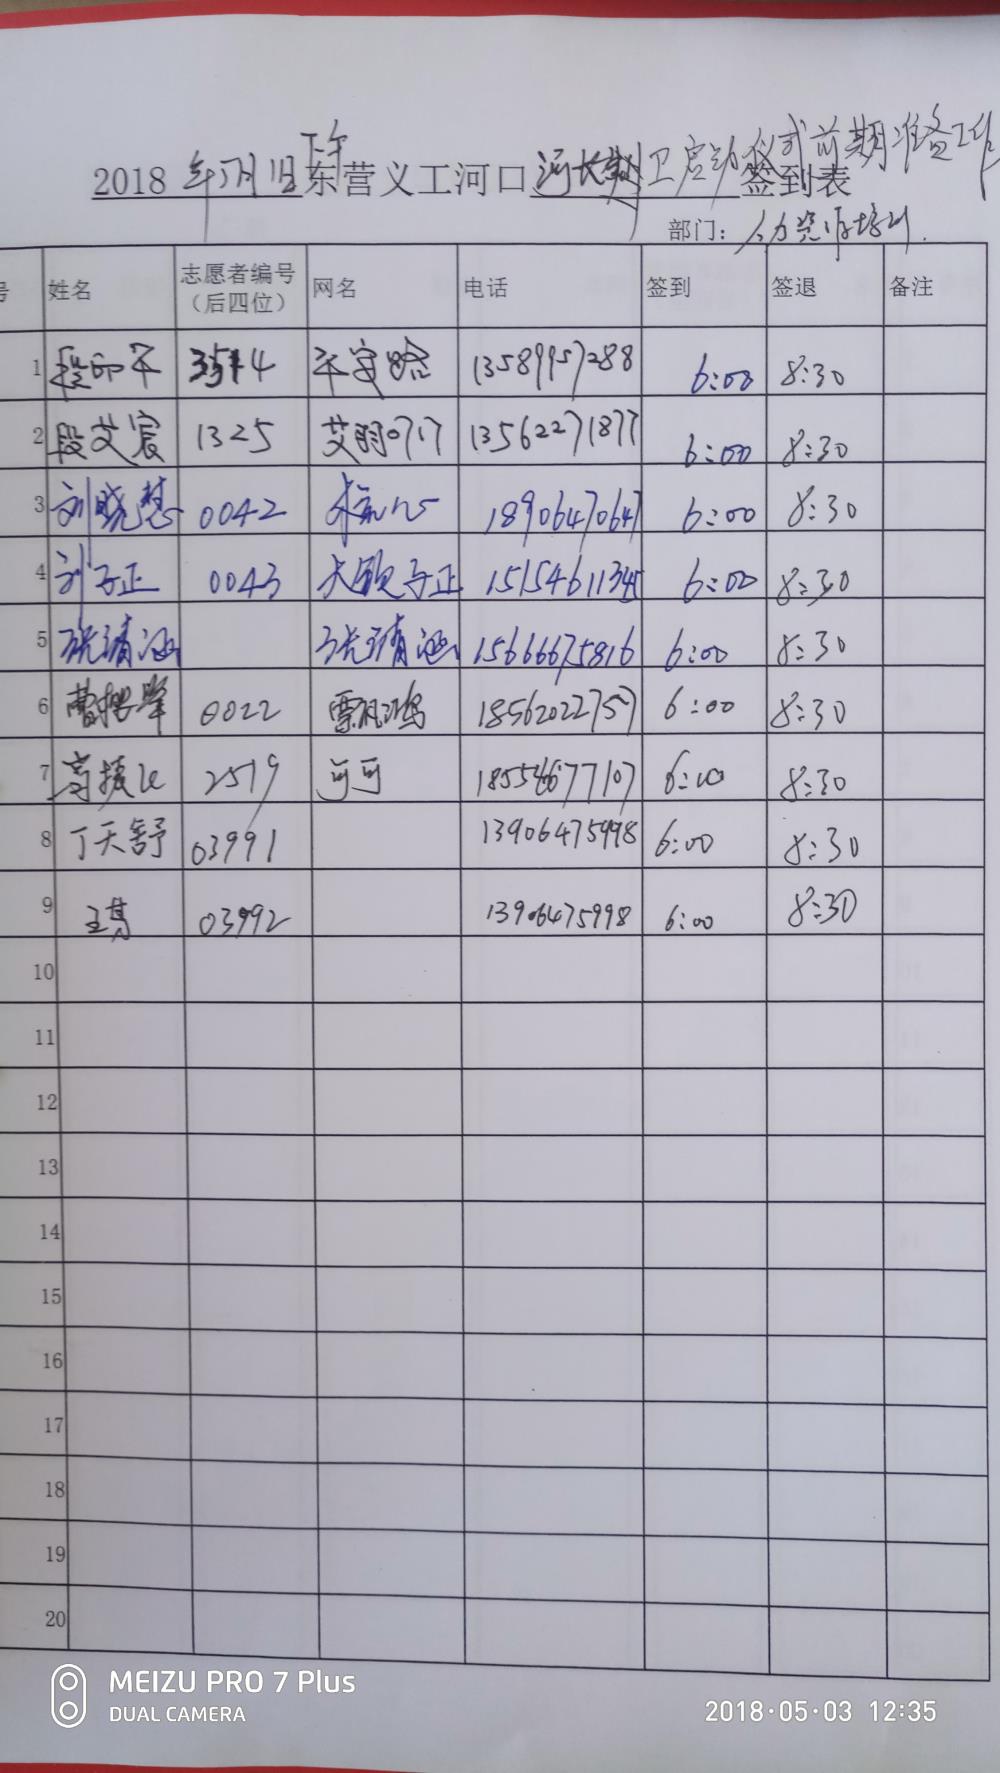 下午
2018 年5月1日东营义工河口河长制卫启动仪式前期准备工作签到表
部门：人力资源培训
号 姓名 志愿者编号（后四位） 网名 电话 签到 签退 备注
1 3514 平安 13589957288 6:00 8:30
2 段艾宸 1325 13562271877 6:00 8:30
3 刘晓慧 0042 18906470647 6:00 8:30
4 刘子正 0043 子正 6:00 8:30
5 张清涵 张清涵 15666675816 6:00 8:30
6 曹 0022 飘飘 18562022757 6:00 8:30
7 高 2519 可可 18554677107 6:00 8:30
8 丁天舒 03991 13906475998 6:00 8:30
9 王 03992 13906475998 6:00 8:30
10
11
12
13
14
15
16
17
18
19
20
MEIZU PRO 7 Plus
DUAL CAMERA
2018·05·03 12:35